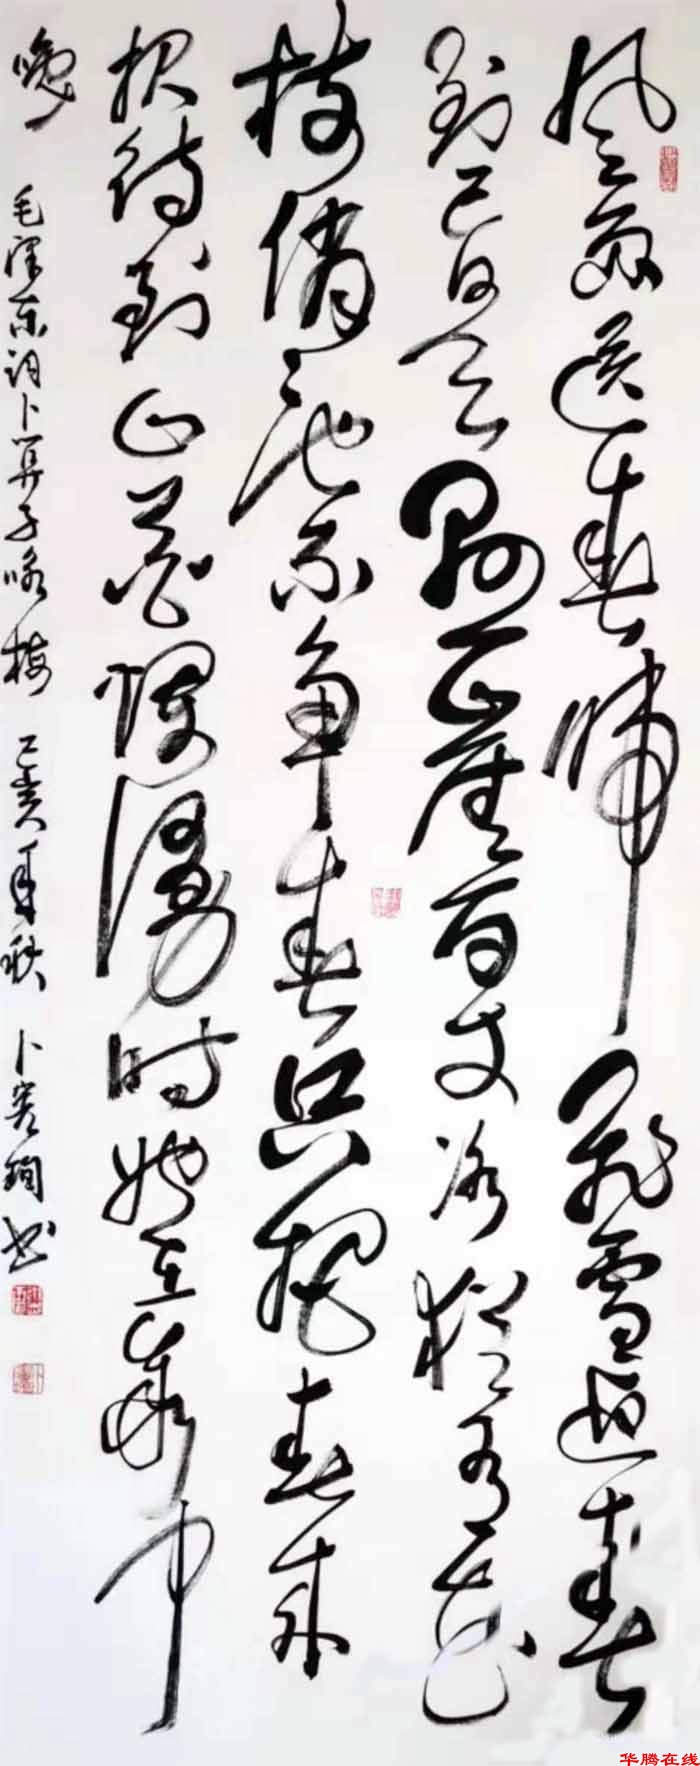 风雨送春归飞雪迎春
到已是悬崖百丈冰犹有花
枝俏々也不争春只把春来
报待到山花烂漫时她在丛中
咲 毛泽东词卜算子咏梅 己亥年秋 卜珣书
华腾在线